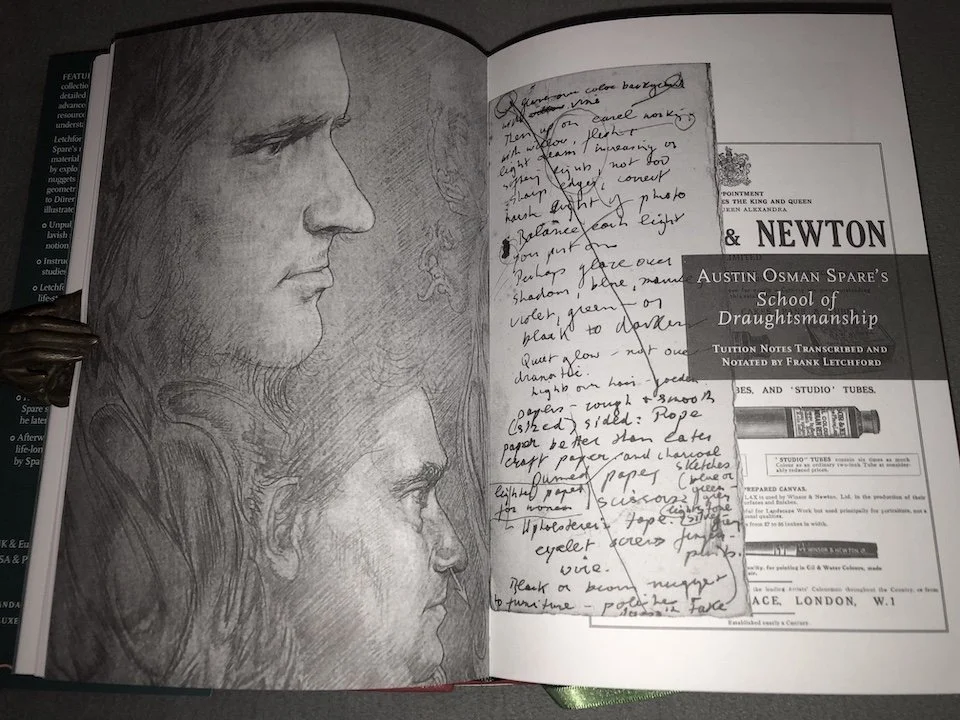 FEATU
collectio
detailed
advance
resource
understa
Letchfor
Spare's
material
by explo
nuggets
geometr
to Dürer
illustrate
Unpu
lavish
notion
Instruc
studies
Letchf
life-s
Spare's
he late
Afterw
life-lon
by Spa
K & Eu
SA & P
ANDA
UXE
give own color background
with vine
Then up on easel working
with willow, light
light areas / increasing or
softening lights, not too
sharp edges, correct
harsh light of photo
Balance each light
you put on
Perhaps glaze over
shadows, blue, mauve
violet, green - or
black to darken
Quiet glow - not over
dramatic.
lights on hair - golden
papers - rough & smooth
(sized) sided: Rope
paper better than later
craft paper and charcoal
sketches
paper
(blue or
green -
grey
lighter paper
for women
scissors
light tone
Upholsterer's tape
silver
grey
eyelet screws
finger-
prints.
wire.
Black or brown nugget
to furniture - polisher
Fake
POINTMENT
ES THE KING AND QUEEN
UEEN ALEXANDRA
& NEWTON
LIMITED
AUSTIN OSMAN SPARE'S
School of
Draughtsmanship
TUITION NOTES TRANSCRIBED AND
NOTATED BY FRANK LETCHFORD
BES, AND 'STUDIO' TUBES.
"STUDIO" TUBES contain six times as much
Colour as an ordinary two-inch Tube at consider-
ably reduced prices.
PREPARED CANVAS.
is used by Winsor & Newton, Ltd. in the production of their
for Landscape Work but used principally for portraiture, not a
qualities.
inches in width.
WINSOR & NEWTON
for painting in Oil & Water Colours, made
the leading Artists' Colourmen throughout the Country, or from
ACE, LONDON, W.1
Established nearly a Century